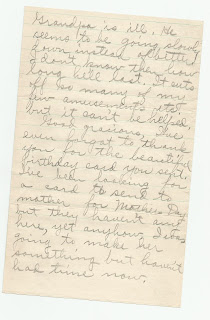 Grandpa is ill. He
seems to be going slowly
down instead of better.
I don't know than how
long he'll last. It cuts
off so many of my
few amusements, etc.
but it can't be helped.
Good gracious, I've
even forgot to thank
you for the beautiful
birthday card you sent.
I've been looking for
a card to send to
mother for Mothers Day
but they haven't any
here, yet anyhow. I was
going to make her
something but haven't
had time now.